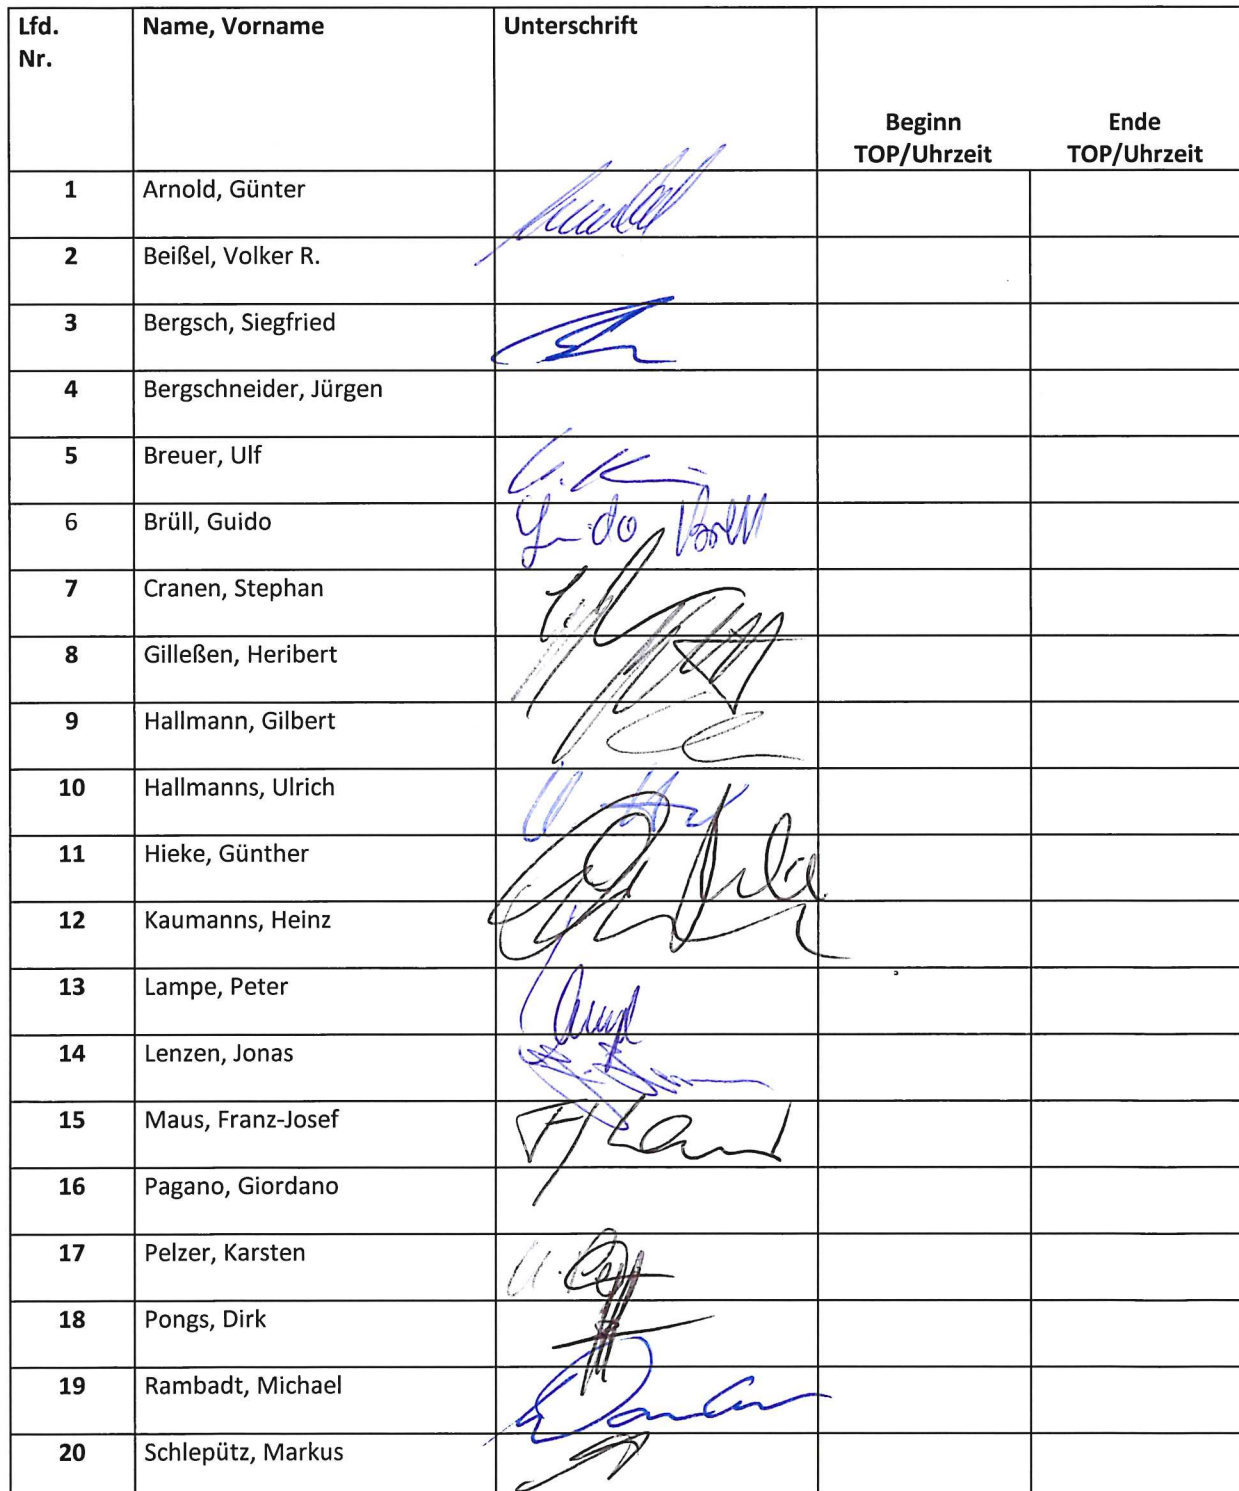 Lfd. Name, Vorname Unterschrift
Nr.
Beginn Ende
TOP/Uhrzeit TOP/Uhrzeit
1 Arnold, Günter
2 Beißel, Volker R.
3 Bergsch, Siegfried
4 Bergschneider, Jürgen
5 Breuer, Ulf
6 Brüll, Guido Guido Brüll
7 Cranen, Stephan
8 Gilleßen, Heribert
9 Hallmann, Gilbert
10 Hallmanns, Ulrich
11 Hieke, Günther
12 Kaumanns, Heinz
13 Lampe, Peter
14 Lenzen, Jonas
15 Maus, Franz-Josef
16 Pagano, Giordano
17 Pelzer, Karsten
18 Pongs, Dirk
19 Rambadt, Michael
20 Schlepütz, Markus